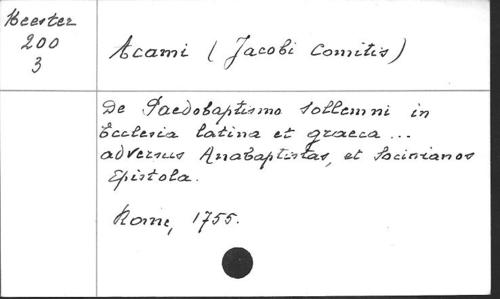 Heester
200
3
Acami (Jacobi Comitis)
De Paedobaptismo Sollemni in
Ecclesia latina et graeca ...
adversus Anabaptistas, et Socinianos
Epistola.
Rome, 1755.